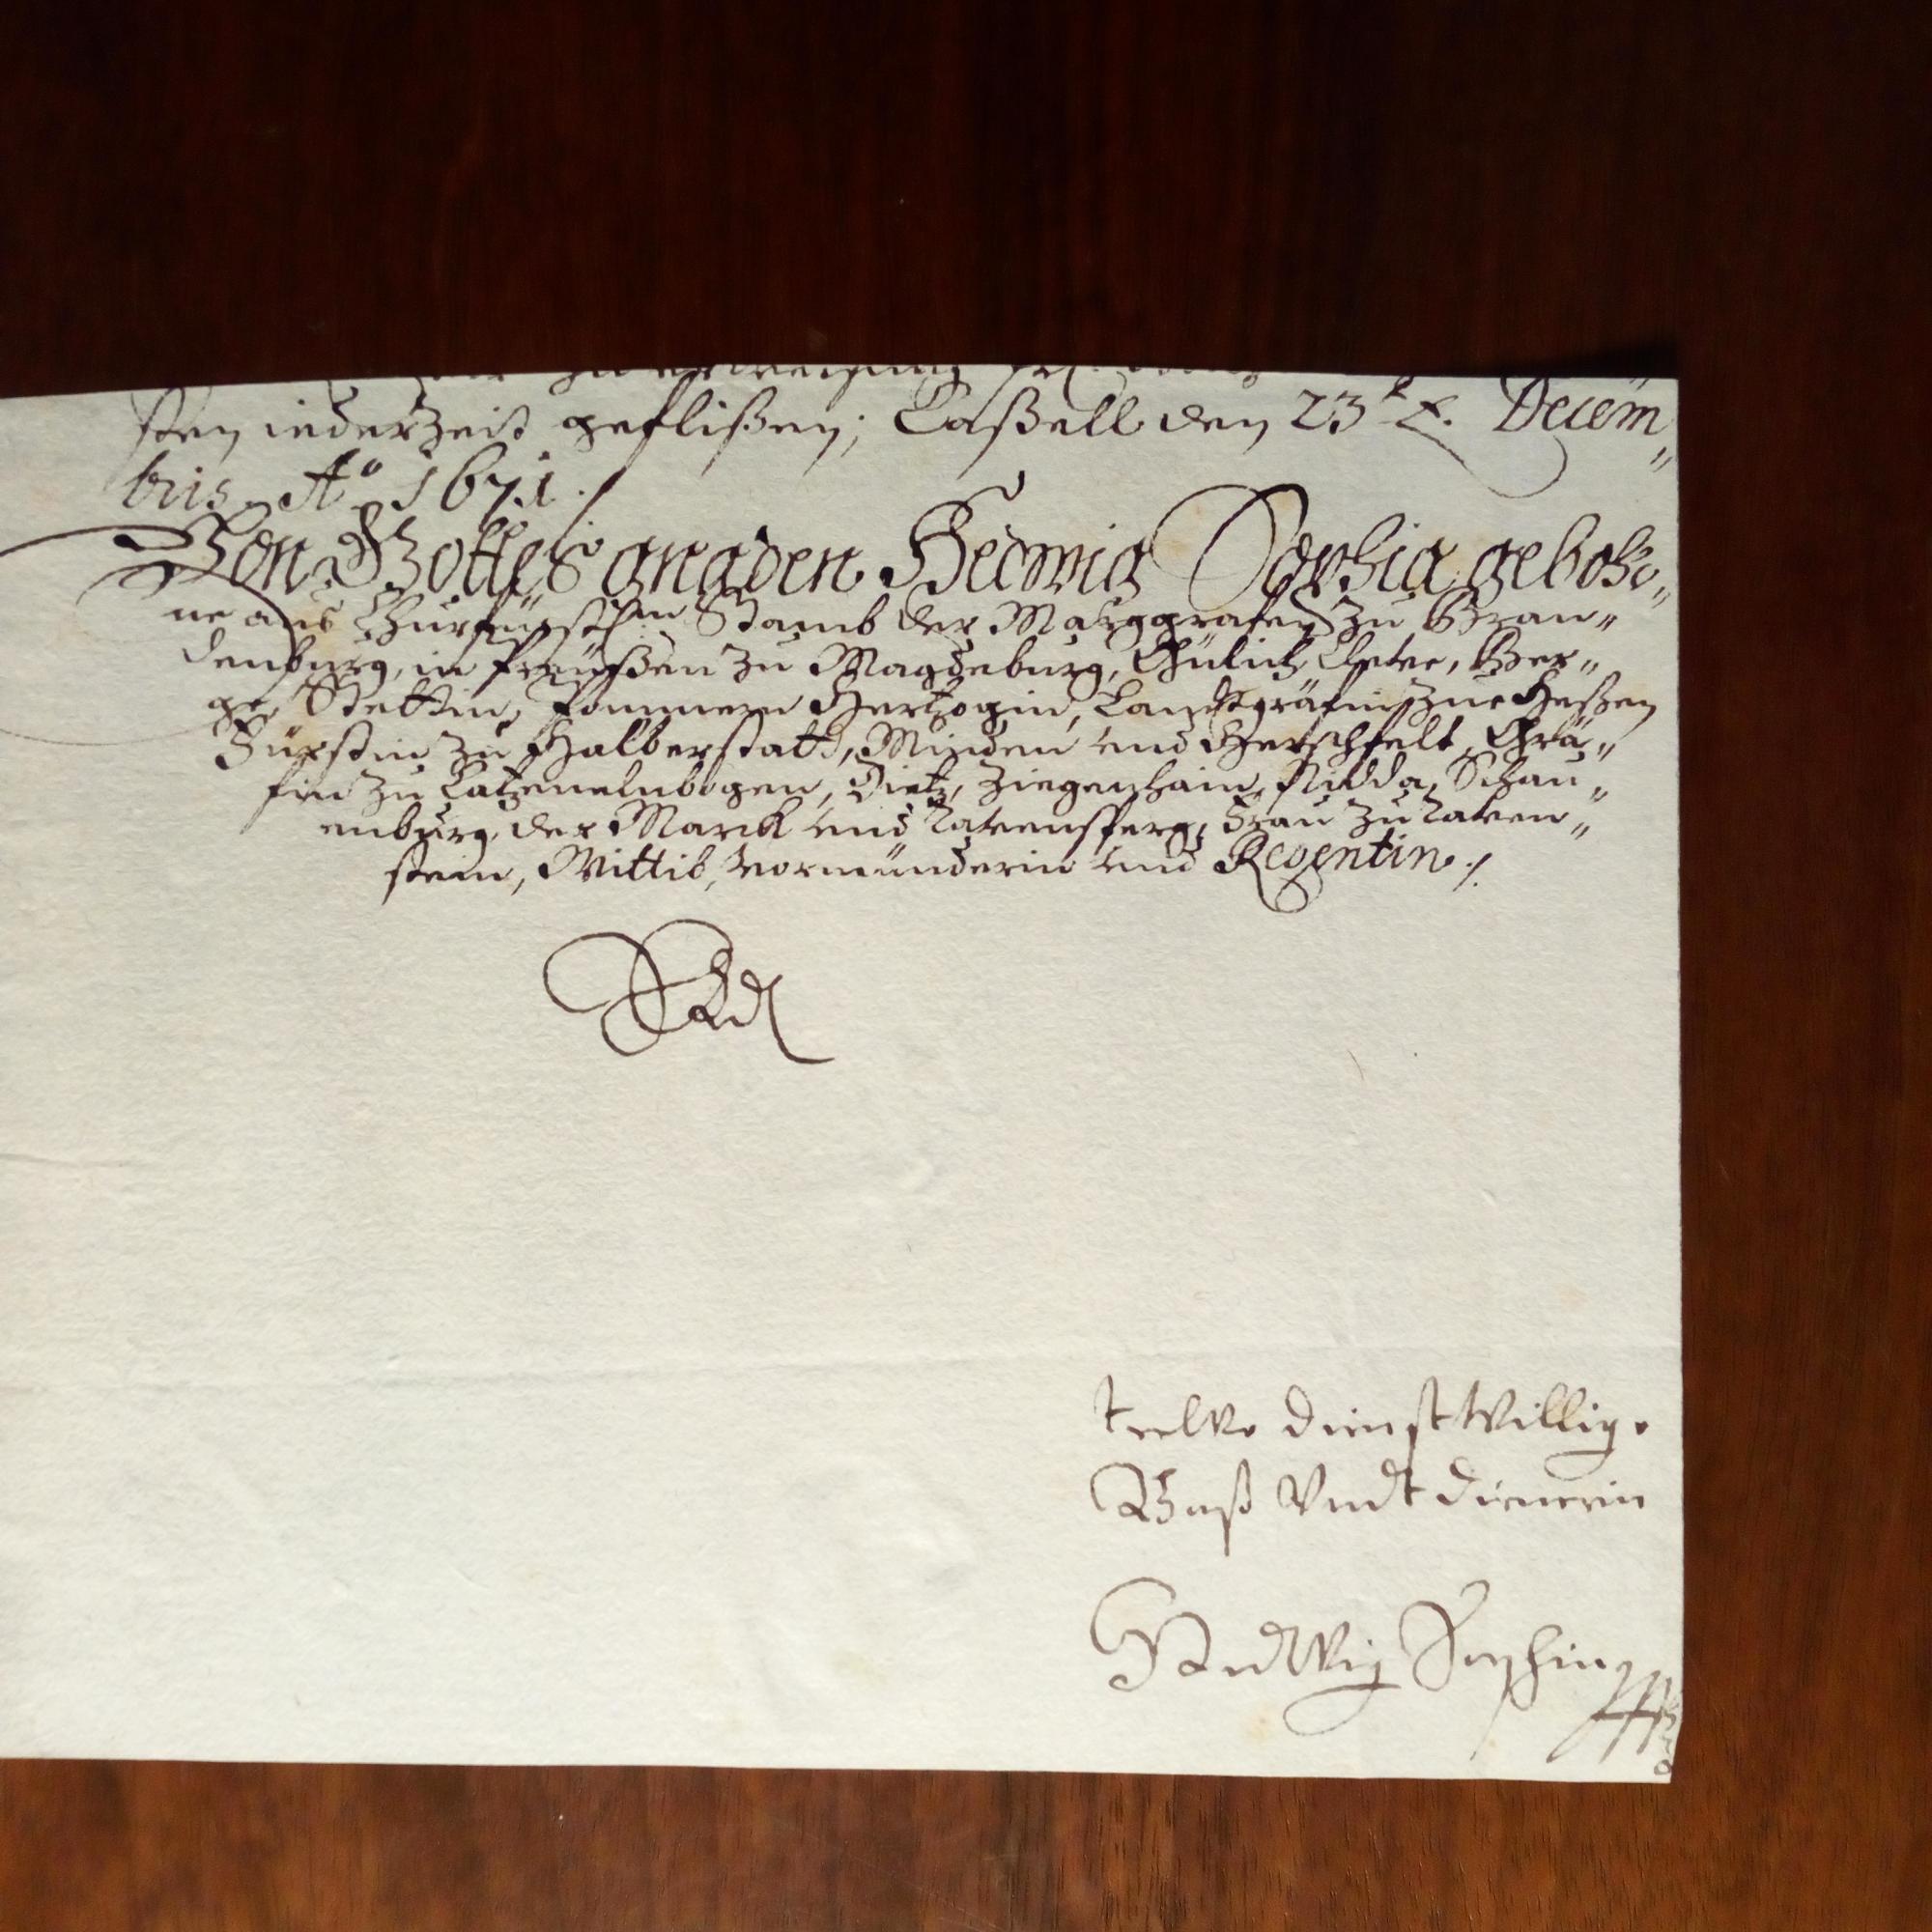 zu erweisung
sten iederzeit geflißen; Caßell den 23t Decem„
bris. Ao. 1671./.
Von Gottes gnaden Hedwig Sophia gebohr„
ne aus Churfürstln Stamb der Marggrafen zu Bran„
denburg, in Preüßen zu Magdeburg, Gülich, Cleve, Ber„
ge, Stettin, Pommern Hertzogin, Landtgräfin zue Heßen
Fürstin zu Halberstatt, Minden und Herschfelt, Grä„
fin zu Catzenelnbogen, Dietz, Ziegenhain, Nidda, Schau„
enburg, der Marck und Ravensperg, Frau zu Raven„
stein, Wittib, Vormünderin und Regentin./.
dienstwillige
Baß Undt dienerin
Hedwig Sophia